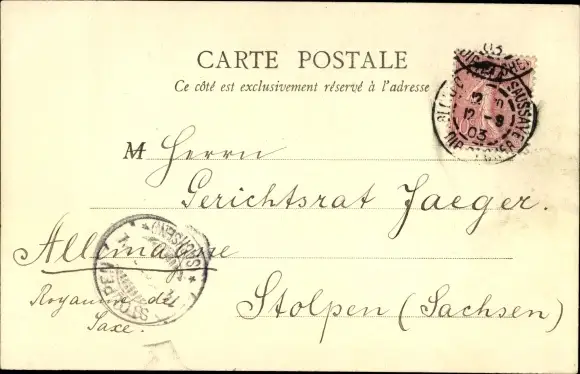 CARTE POSTALE
Ce côté est exclusivement réservé à l'adresse
M Herrn
Gerichtsrat Jaeger.
Allemagne
Royaume de
Saxe.
Stolpen (Sachsen)
STOLPEN
(SACHSEN)
03